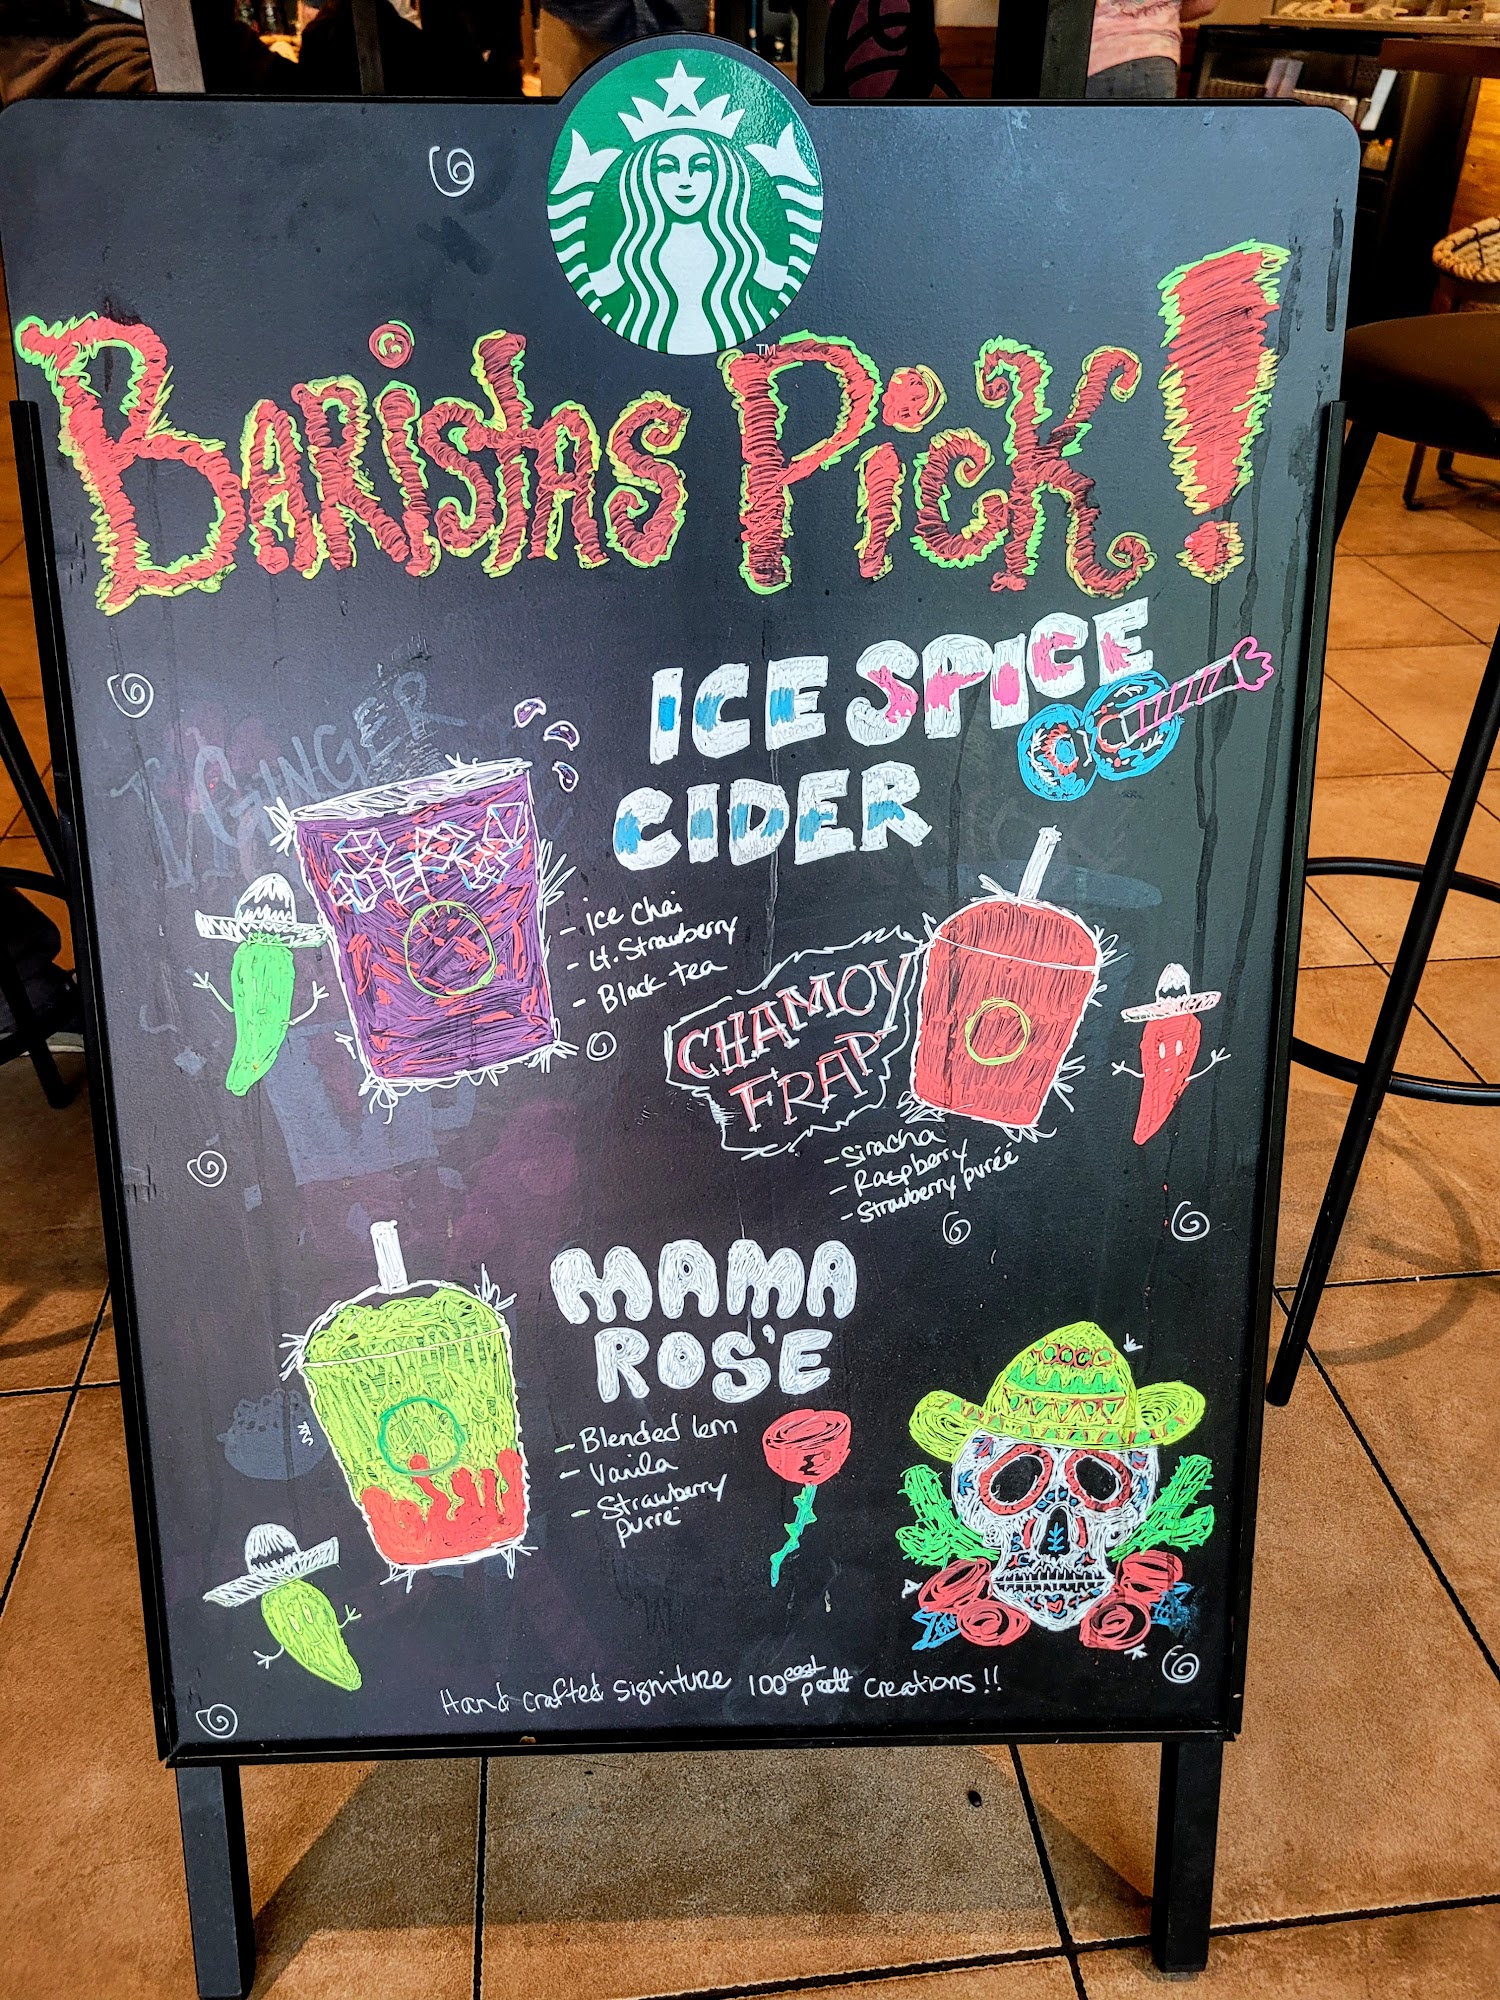 TM
BARistAS PicK!
ICE SPICE
CIDER
GiNGER
- ice chai
- Lt. Strawberry
- Black tea
CHAMOY
FRAP
- Siracha
- Raspberry
- Strawberry purée
MAMA
ROS'E
- Blended lem
- Vanila
- Strawberry
purre
Hand crafted signiture 100 creations!!